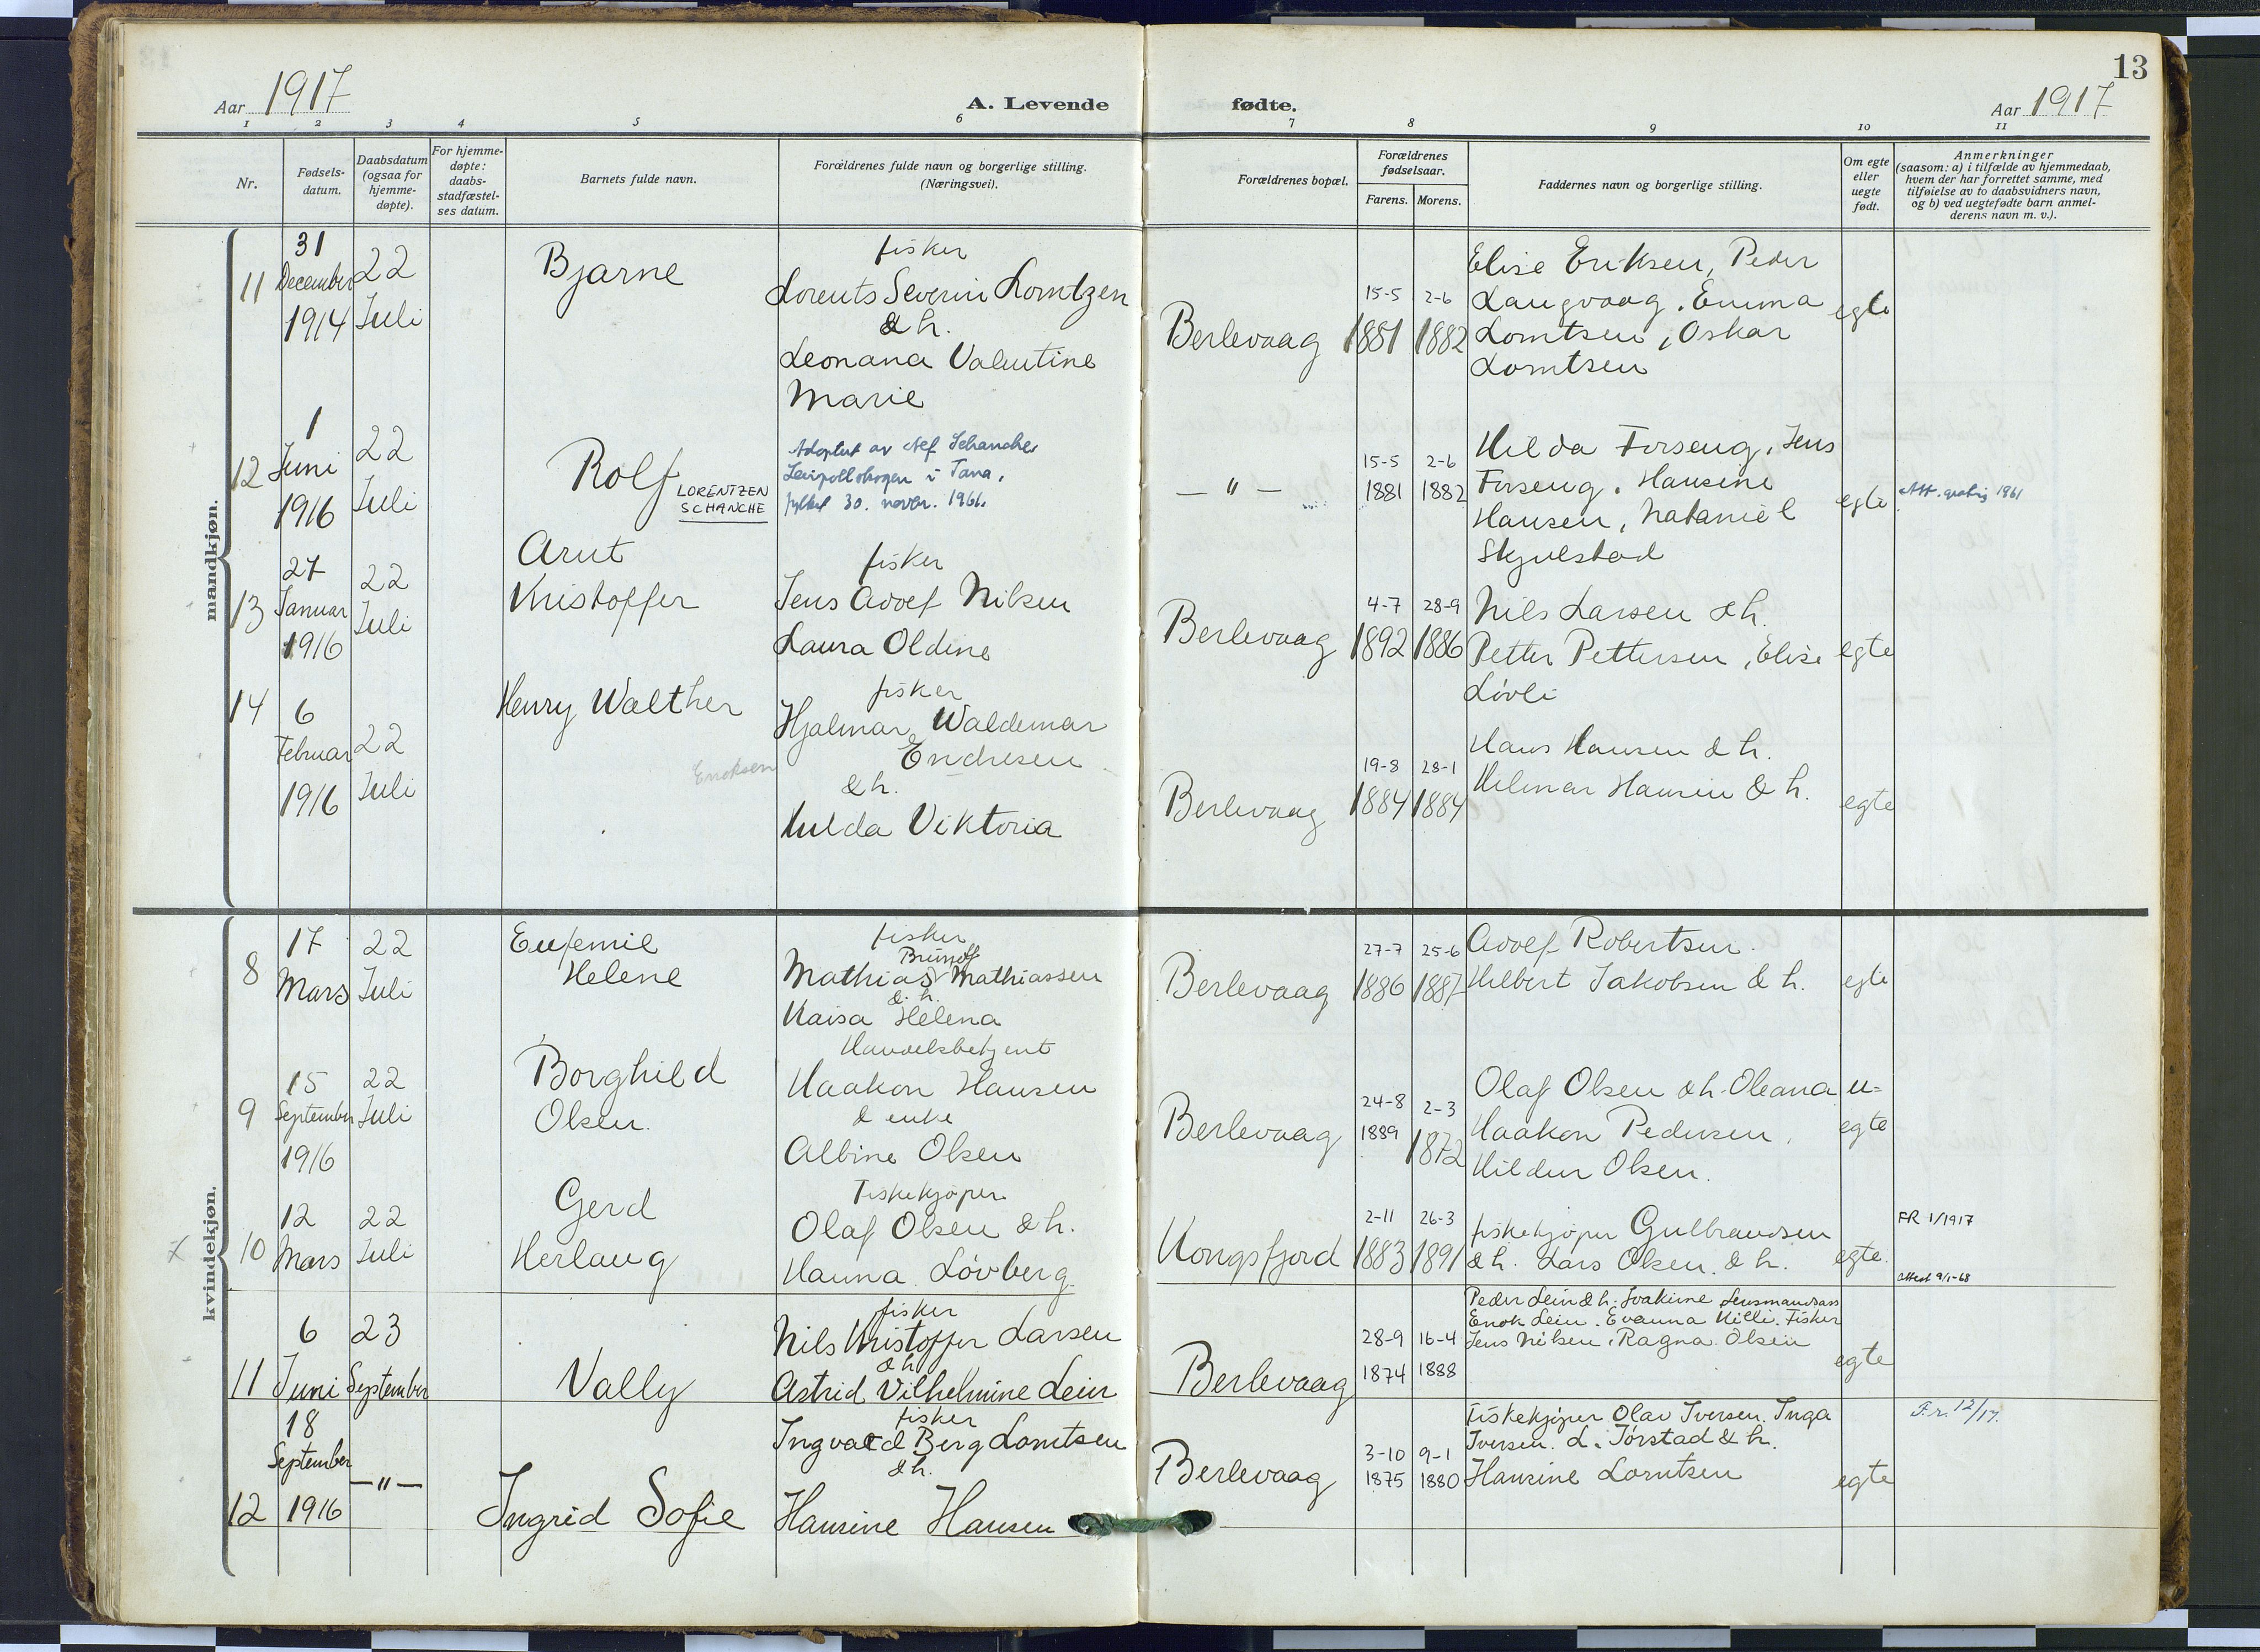 13
Aar 1917
A. Levende fødte.
Aar 1917
1 2 3 4 5 6 7 8 9 10 11
Nr.
Fødsels-
datum.
Daabsdatum
(ogsaa for
hjemme-
døpte).
For hjemme-
døpte:
daabs-
stadfæstel-
ses datum.
Barnets fulde navn.
Forældrenes fulde navn og borgerlige stilling.
(Næringsvei).
Forældrenes bopæl.
Forældrenes
fødselsaar.
Farens. Morens.
Faddernes navn og borgerlige stilling.
Om egte
eller
uegte
født.
Anmerkninger
(saasom: a) i tilfælde av hjemmedaab,
hvem der har forrettet samme, med
tilføielse av to daabsvidners navn,
og b) ved uegtefødte barn anmel-
derens navn m. v.).
mandkjøn.
11
31
December
1914
22
Juli
Bjarne
fisker
Lorents Severin Lorntzen
& h.
Leonana Valentine
Marie
Berlevaag
15-5
1881
2-6
1882
Elise Eriksen, Peder
Langvaag. Emma
Lorntsen, Oskar
Lorntsen
egte
12
1
Juni
1916
22
Juli
Rolf
LORENTZEN
SCHANCHE
Adoptert av Alf Schanche
Leirpollskogen i Tana,
fylket 30. novbr. 1966.
— " —
15-5
1881
2-6
1882
Hilda Forseng, Jens
Forseng. Hansine
Hansen, Nataniel
Skjulstad
egte
Att. gratis 1961
13
27
Januar
1916
22
Juli
Arnt
Kristoffer
fisker
Jens Adolf Nilsen
Laura Oldine
Berlevaag
4-7
1892
28-9
1886
Nils Larsen & h.
Petter Pettersen, Elise
Løvli
egte
14
6
Februar
1916
22
Juli
Henry Walther
Eriksen
fisker
Hjalmar Waldemar
Endresen
& h.
Hulda Viktoria
Berlevaag
19-8
1884
28-1
1884
Hans Hansen & h.
Hilmar Hansen & h.
egte
kvindekjøn.
8
17
Mars
22
Juli
Eufemie
Helene
fisker
Brunolf
Mathias Mathiassen
& h.
Kaisa Helena
Berlevaag
27-7
1886
25-6
1887
Adolf Robertsen.
Hilbert Jakobsen & h.
egte
9
15
September
1916
22
Juli
Borghild
Olsen.
Handelsbetjent
Haakon Hansen
& enke
Albine Olsen
Berlevaag
24-8
1889
2-3
1872
Olaf Olsen & h. Oleana
Haakon Pedersen,
Hildur Olsen.
u-
egte
10
12
Mars
22
Juli
Gerd
Herlaug
Fiskekjøper
Olaf Olsen & h.
Hanna Løvberg
Kongsfjord
2-11
1883
26-3
1891
fiskekjøper Gulbrandsen
& h. Lars Olsen & h.
egte.
FR 1/1917
Attest 9/1-68
11
6
Juni
23
September
Vally
fisker
Nils Kristoffer Larsen
& h
Astrid Vilhelmine Lein
Berlevaag
28-9
1874
16-4
1888
Peder Lein & h. Joakime Lensmandsass
Enok Lein. Evanna Killi. Fisker
Jens Nilsen, Ragna Olsen
egte
12
18
September
1916
— " —
Ingrid Sofie
fisker
Ingvald Berg Lorntsen
& h.
Hansine Hansen
Berlevaag
3-10
1875
9-1
1880
Fiskekjøper Olav Iversen. Inga
Iversen. L. Tørstad & h.
Hansine Lorntsen
egte
F.r. 12/17.